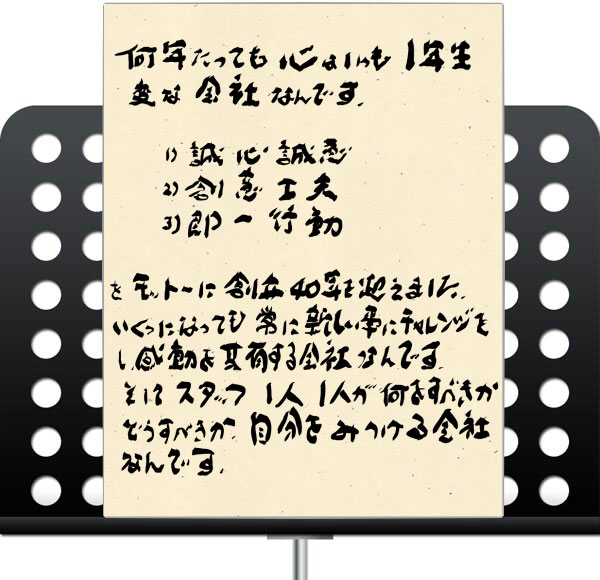 何年たっても 心はいつも 1年生
変な 会社 なんです。
1) 誠心誠意
2) 創意工夫
3) 即一行動
を モットーに 創立 40年を迎えました。
いくつになっても 常に新しい事にチャレンジを
し 感動を共有する会社なんです。
そしてスタッフ 1人 1人が 何をすべきか
どうすべきか、自分を みつける会社
なんです。